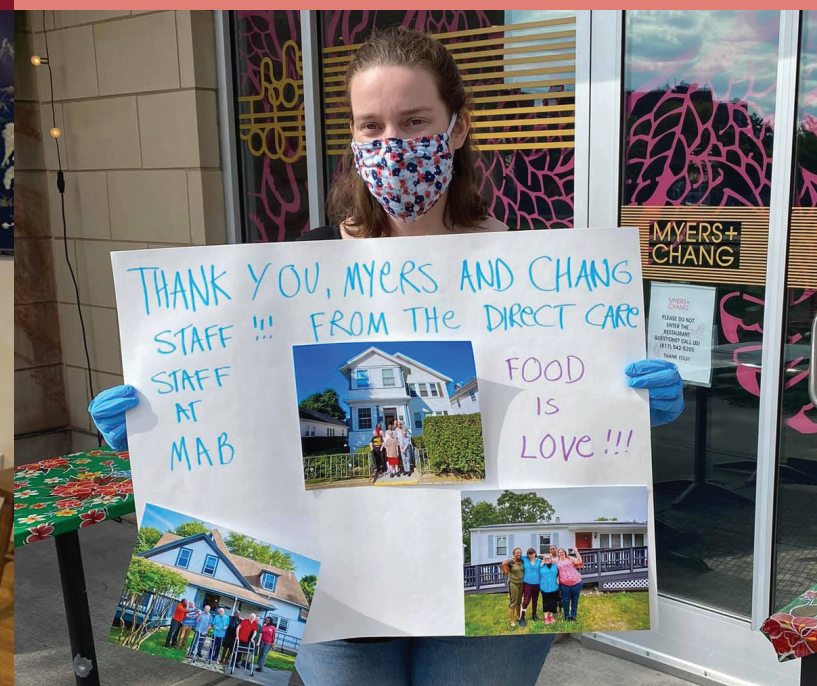 THANK YOU, MYERS AND CHANG
STAFF !!! FROM THE DIRECT CARE
STAFF
AT
MAB
FOOD
IS
LOVE!!!
MYERS+
CHANG
MYERS+
CHANG
PLEASE DO NOT
ENTER THE
RESTAURANT.
QUESTIONS? CALL US!
(617) 542-5200
THANK YOU!